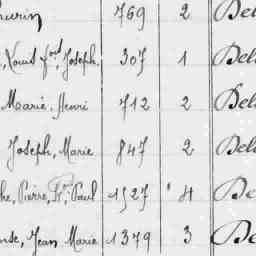 hurin 769 2 Bel
, Louis fois, Joseph. 307 1 Bel
Marie. Henri 712 2 Bel
Joseph, Marie 847 2 Be
he, Pierre, Fr, Paul 1527 4 Be
, Jean Marie 1379 3 Be